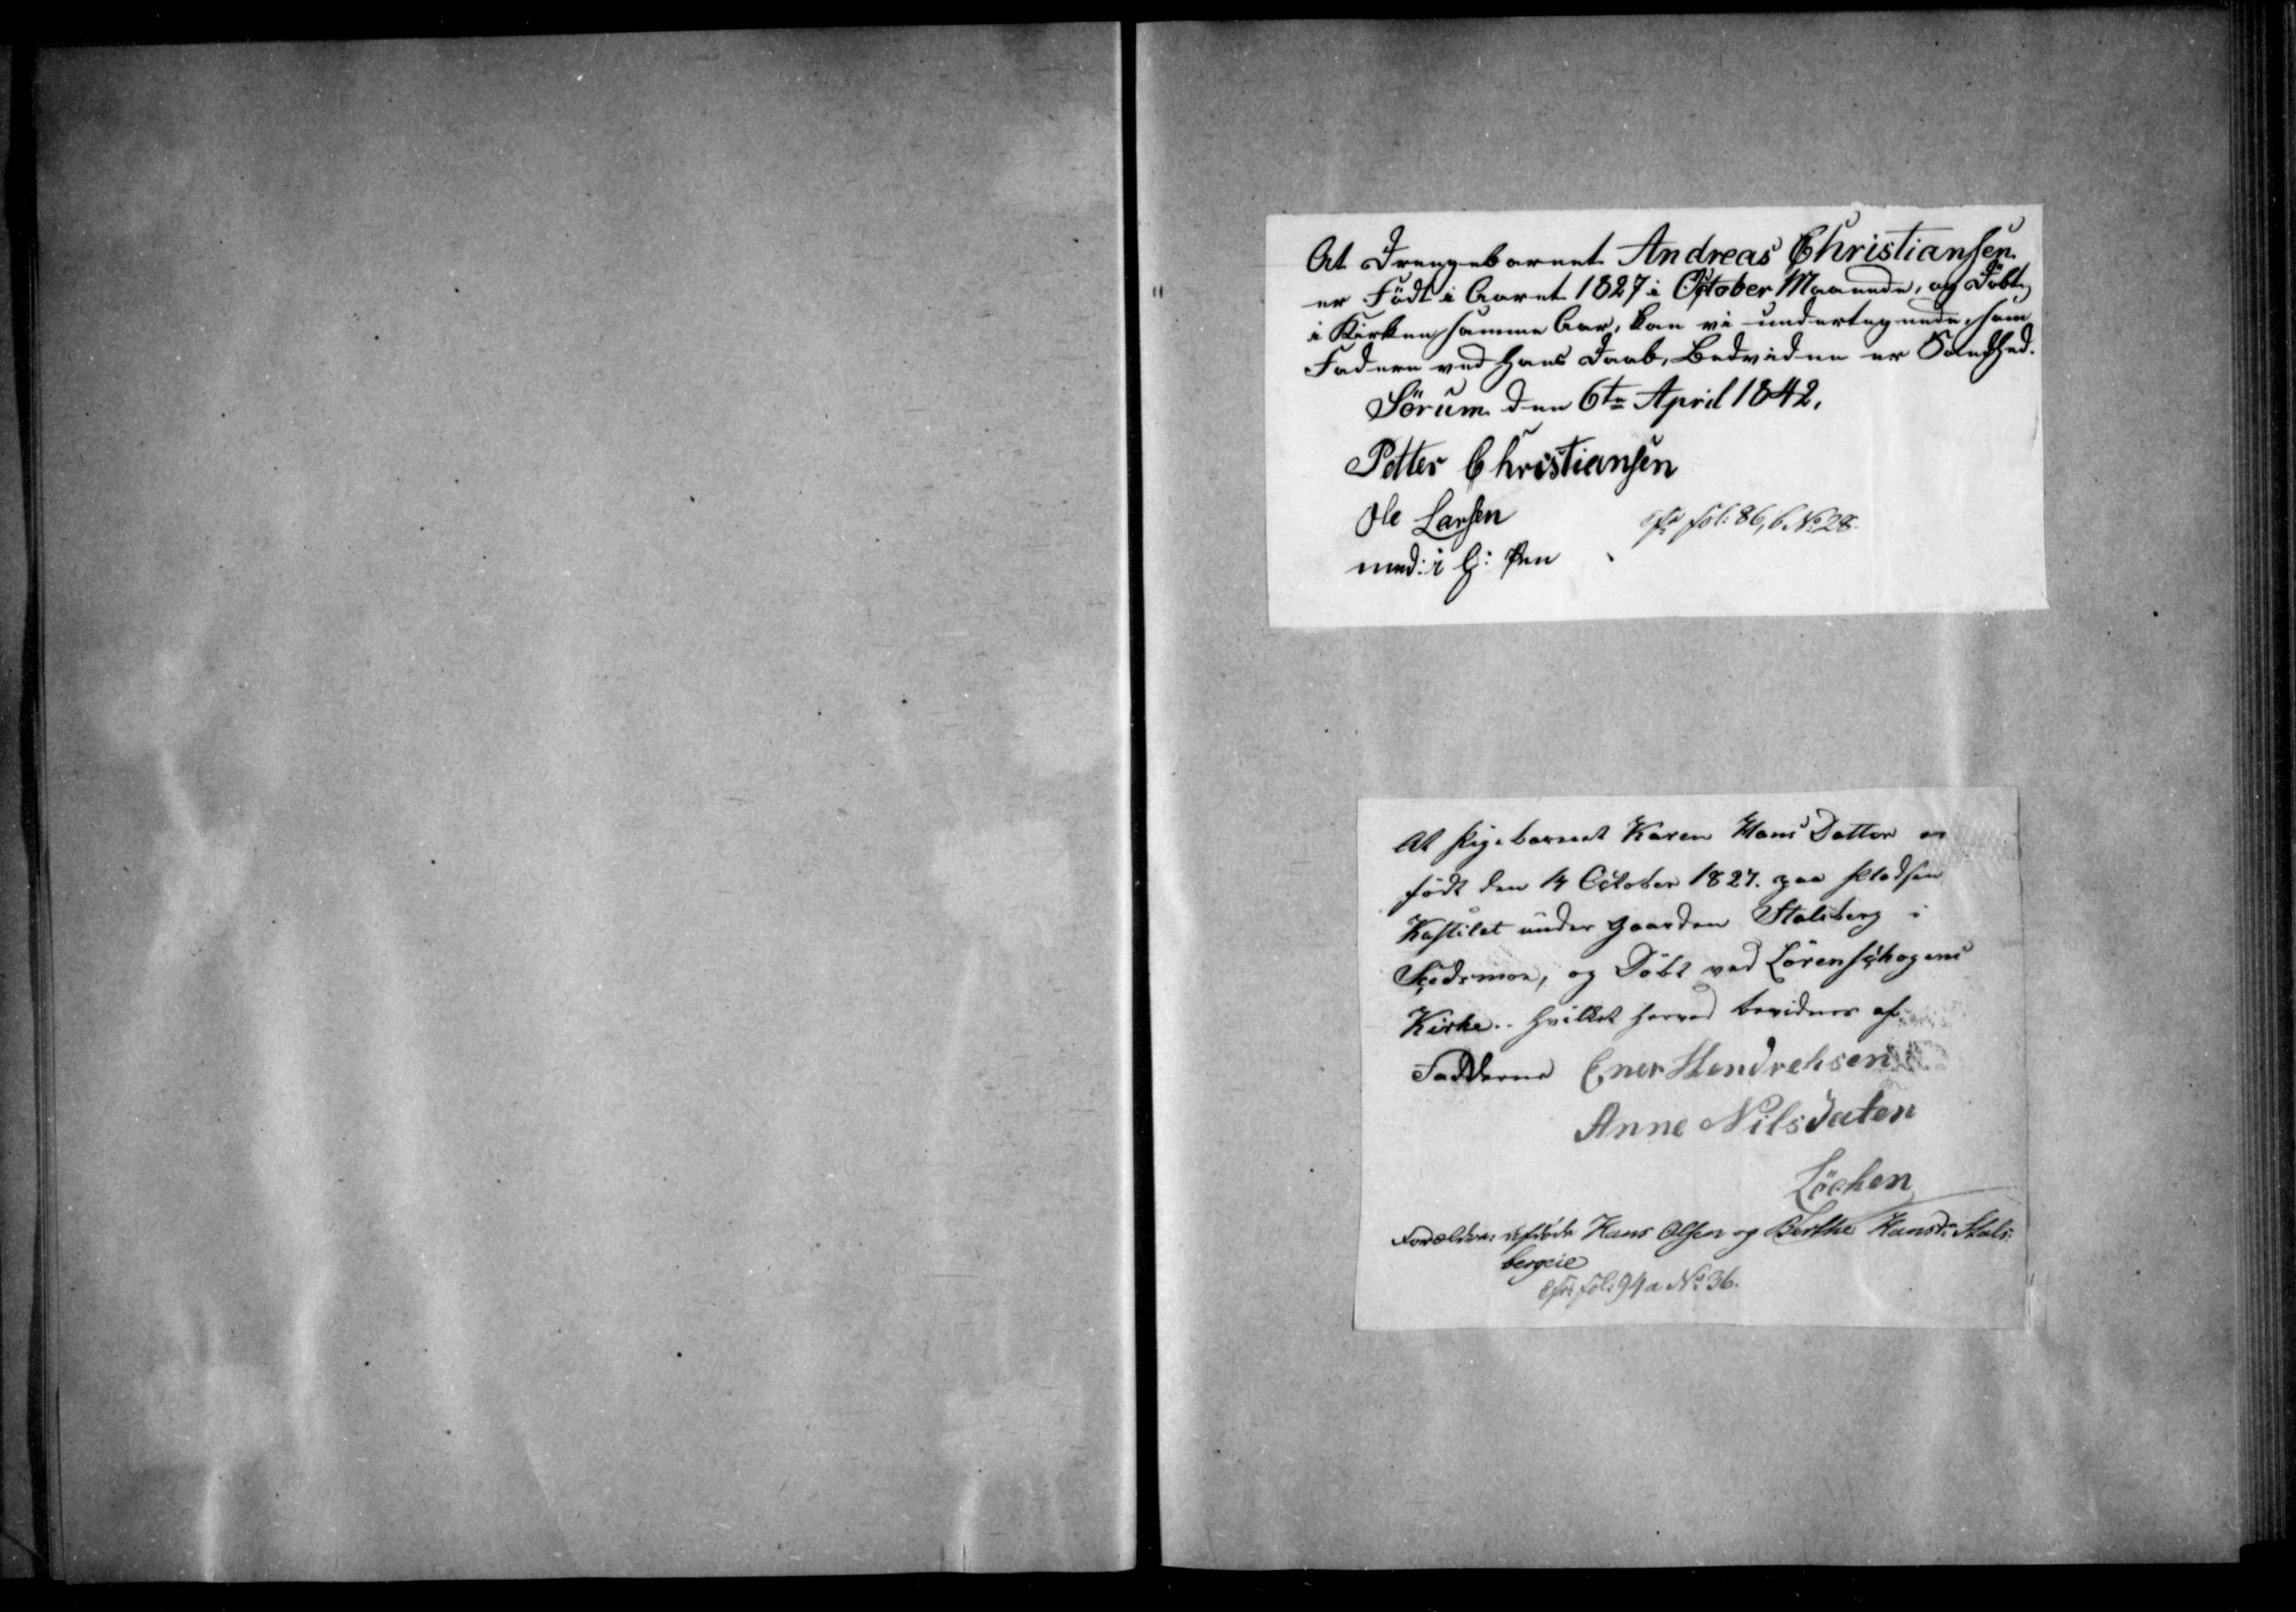 At Drengebarnet Andreas Christiansen
er Födt i Aaret 1827 i October Maaned, og Döbt
i Kirken samme Aar, kan vi undertegnede, som
Faderne ved hans Daab, Bedvidne er Sandhed.
Sörum den 6te April 1842.
Petter Christiansen
Ole Larsen
med: i h: Pen
cfr fol: 86, b. No 28.
At Pigebarnet Karen Hans Datter er
födt den 14 October 1827. paa Pladsen
Kastilet under Gaarden Stalsberg i
Skedsmoe, og Döbt ved Lörenskhogens
Kirke.. hvilket herved bevidnes af
Fadderne Ener Hendrehsen
Anne Nilsdaten
Löchen
Forældre: afdöde Hans Olsen og Berthe Hansdr. Stals-
bergeie
cfr: fol: 94 a No 36.